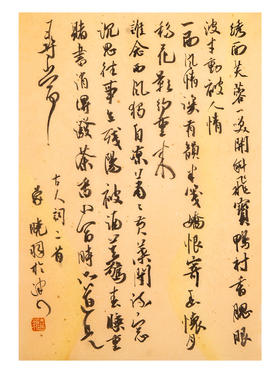 绣面芙蓉一笑開斜飛寶鴨衬香腮眼
波才動被人猜
一面風情深有韻半箋嬌恨寄幽懷月
移花影約重来
誰念西風獨自凉萧萧黄葉閉疏窓
沉思往事立残陽被酒莫驚春睡重
賭書消得潑茶香當時只道是
尋常
古人詞二首